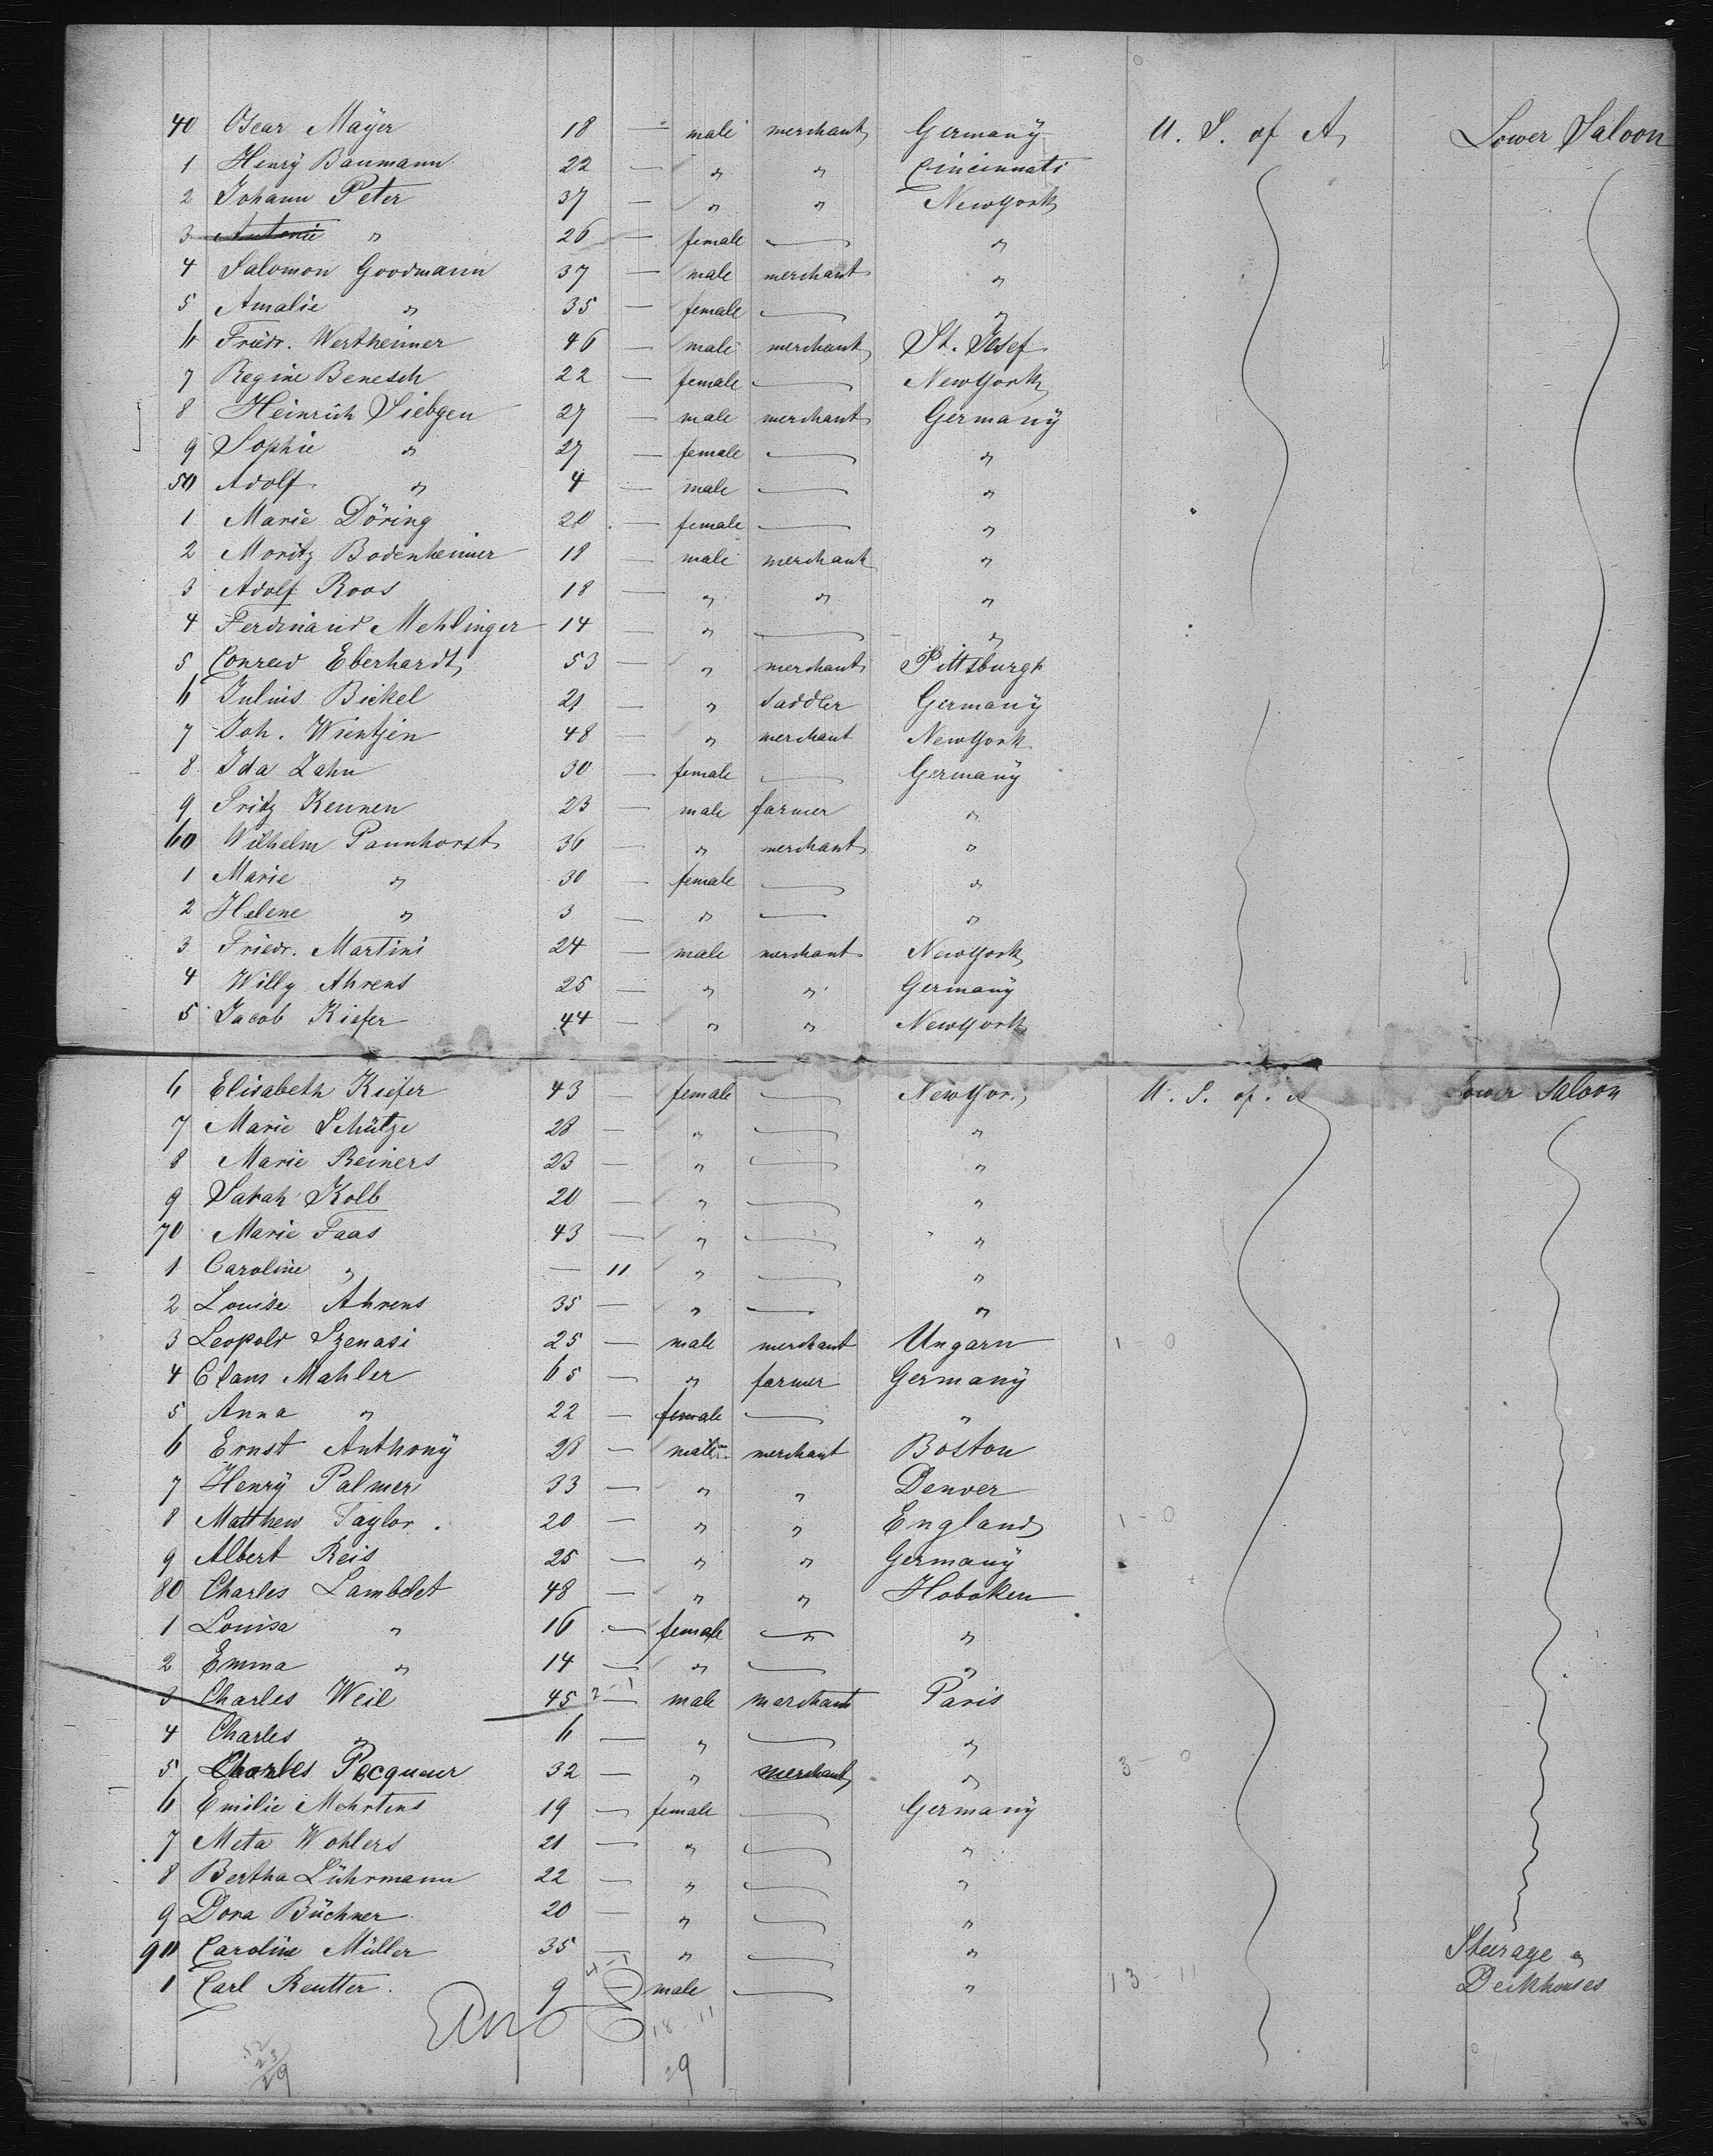 40 Oscar Mayer 18 — male merchant Germany U. S. of A. Lower Saloon
1 Henry Baumann 22 — " " Cincinnati
2 Johann Peter 37 — " " New York
3 Antonie " 26 — female — "
4 Salomon Goodmann 37 — male merchant "
5 Amalie " 35 — female — "
6 Friedr. Wertheimer 46 — male merchant St. Josef
7 Regine Benesch 22 — female — New York
8 Heinrich Siebgen 27 — male merchant Germany
9 Sophie " 27 — female — "
50 Adolf " 4 — male — "
1 Marie Döring 20 — female — "
2 Moritz Bodenheimer 18 — male merchant "
3 Adolf Roos 18 — " " "
4 Ferdinand Mehlinger 14 — " — "
5 Conrad Eberhardt 53 — " merchant Pittsburgh
6 Julius Bickel 21 — " Saddler Germany
7 Joh. Wientjen 48 — " merchant New York
8 Ida Zahn 30 — female — Germany
9 Fritz Kennen 23 — male farmer "
60 Wilhelm Pannhorst 36 — " merchant "
1 Marie " 30 — female — "
2 Helene " 3 — " — "
3 Friedr. Martini 24 — male merchant New York
4 Willy Ahrens 25 — " " Germany
5 Jacob Kiefer 44 — " " New York
6 Elisabeth Kiefer 43 — female — New Yor. U. S. of. A Lower Saloon
7 Marie Schütze 28 — " — "
8 Marie Reiners 23 — " — "
9 Sarah Kolb 20 — " — "
70 Marie Faas 43 — " — "
1 Caroline " — 11 " — "
2 Louise Ahrens 35 — " — "
3 Leopold Szenasi 25 — male merchant Ungarn 1 - 0
4 Claus Mahler 65 — " farmer Germany
5 Anna " 22 — female — "
6 Ernst Anthony 28 — male merchant Boston
7 Henry Palmer 33 — " " Denver
8 Matthew Taylor. 20 — " " England 1 - 0
9 Albert Reis 25 — " " Germany
80 Charles Lambelet 48 — " " Hoboken
1 Louisa " 16 — female — "
2 Emma " 14 — " — "
3 Charles Weil 45 — male merchant Paris
4 Charles " 6 — " — "
5 Charles Pecqueur 32 — " merchant " 3 - 0
6 Emilie Mehrtens 19 — female — Germany
7 Meta Wohlers 21 — " — "
8 Bertha Lührmann 22 — " — "
9 Dora Büchner 20 — " — "
90 Caroline Müller 35 — " — " Steerage "
1 Carl Reutter. 9 — male — " 13 - 11 Deckhouses
18 - 11
23
29